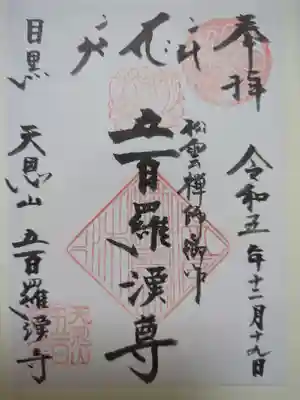 奉拝
令和五年十二月十九日
松雲禅師御作
五百羅漢尊
目黒 天恩山 五百羅漢寺